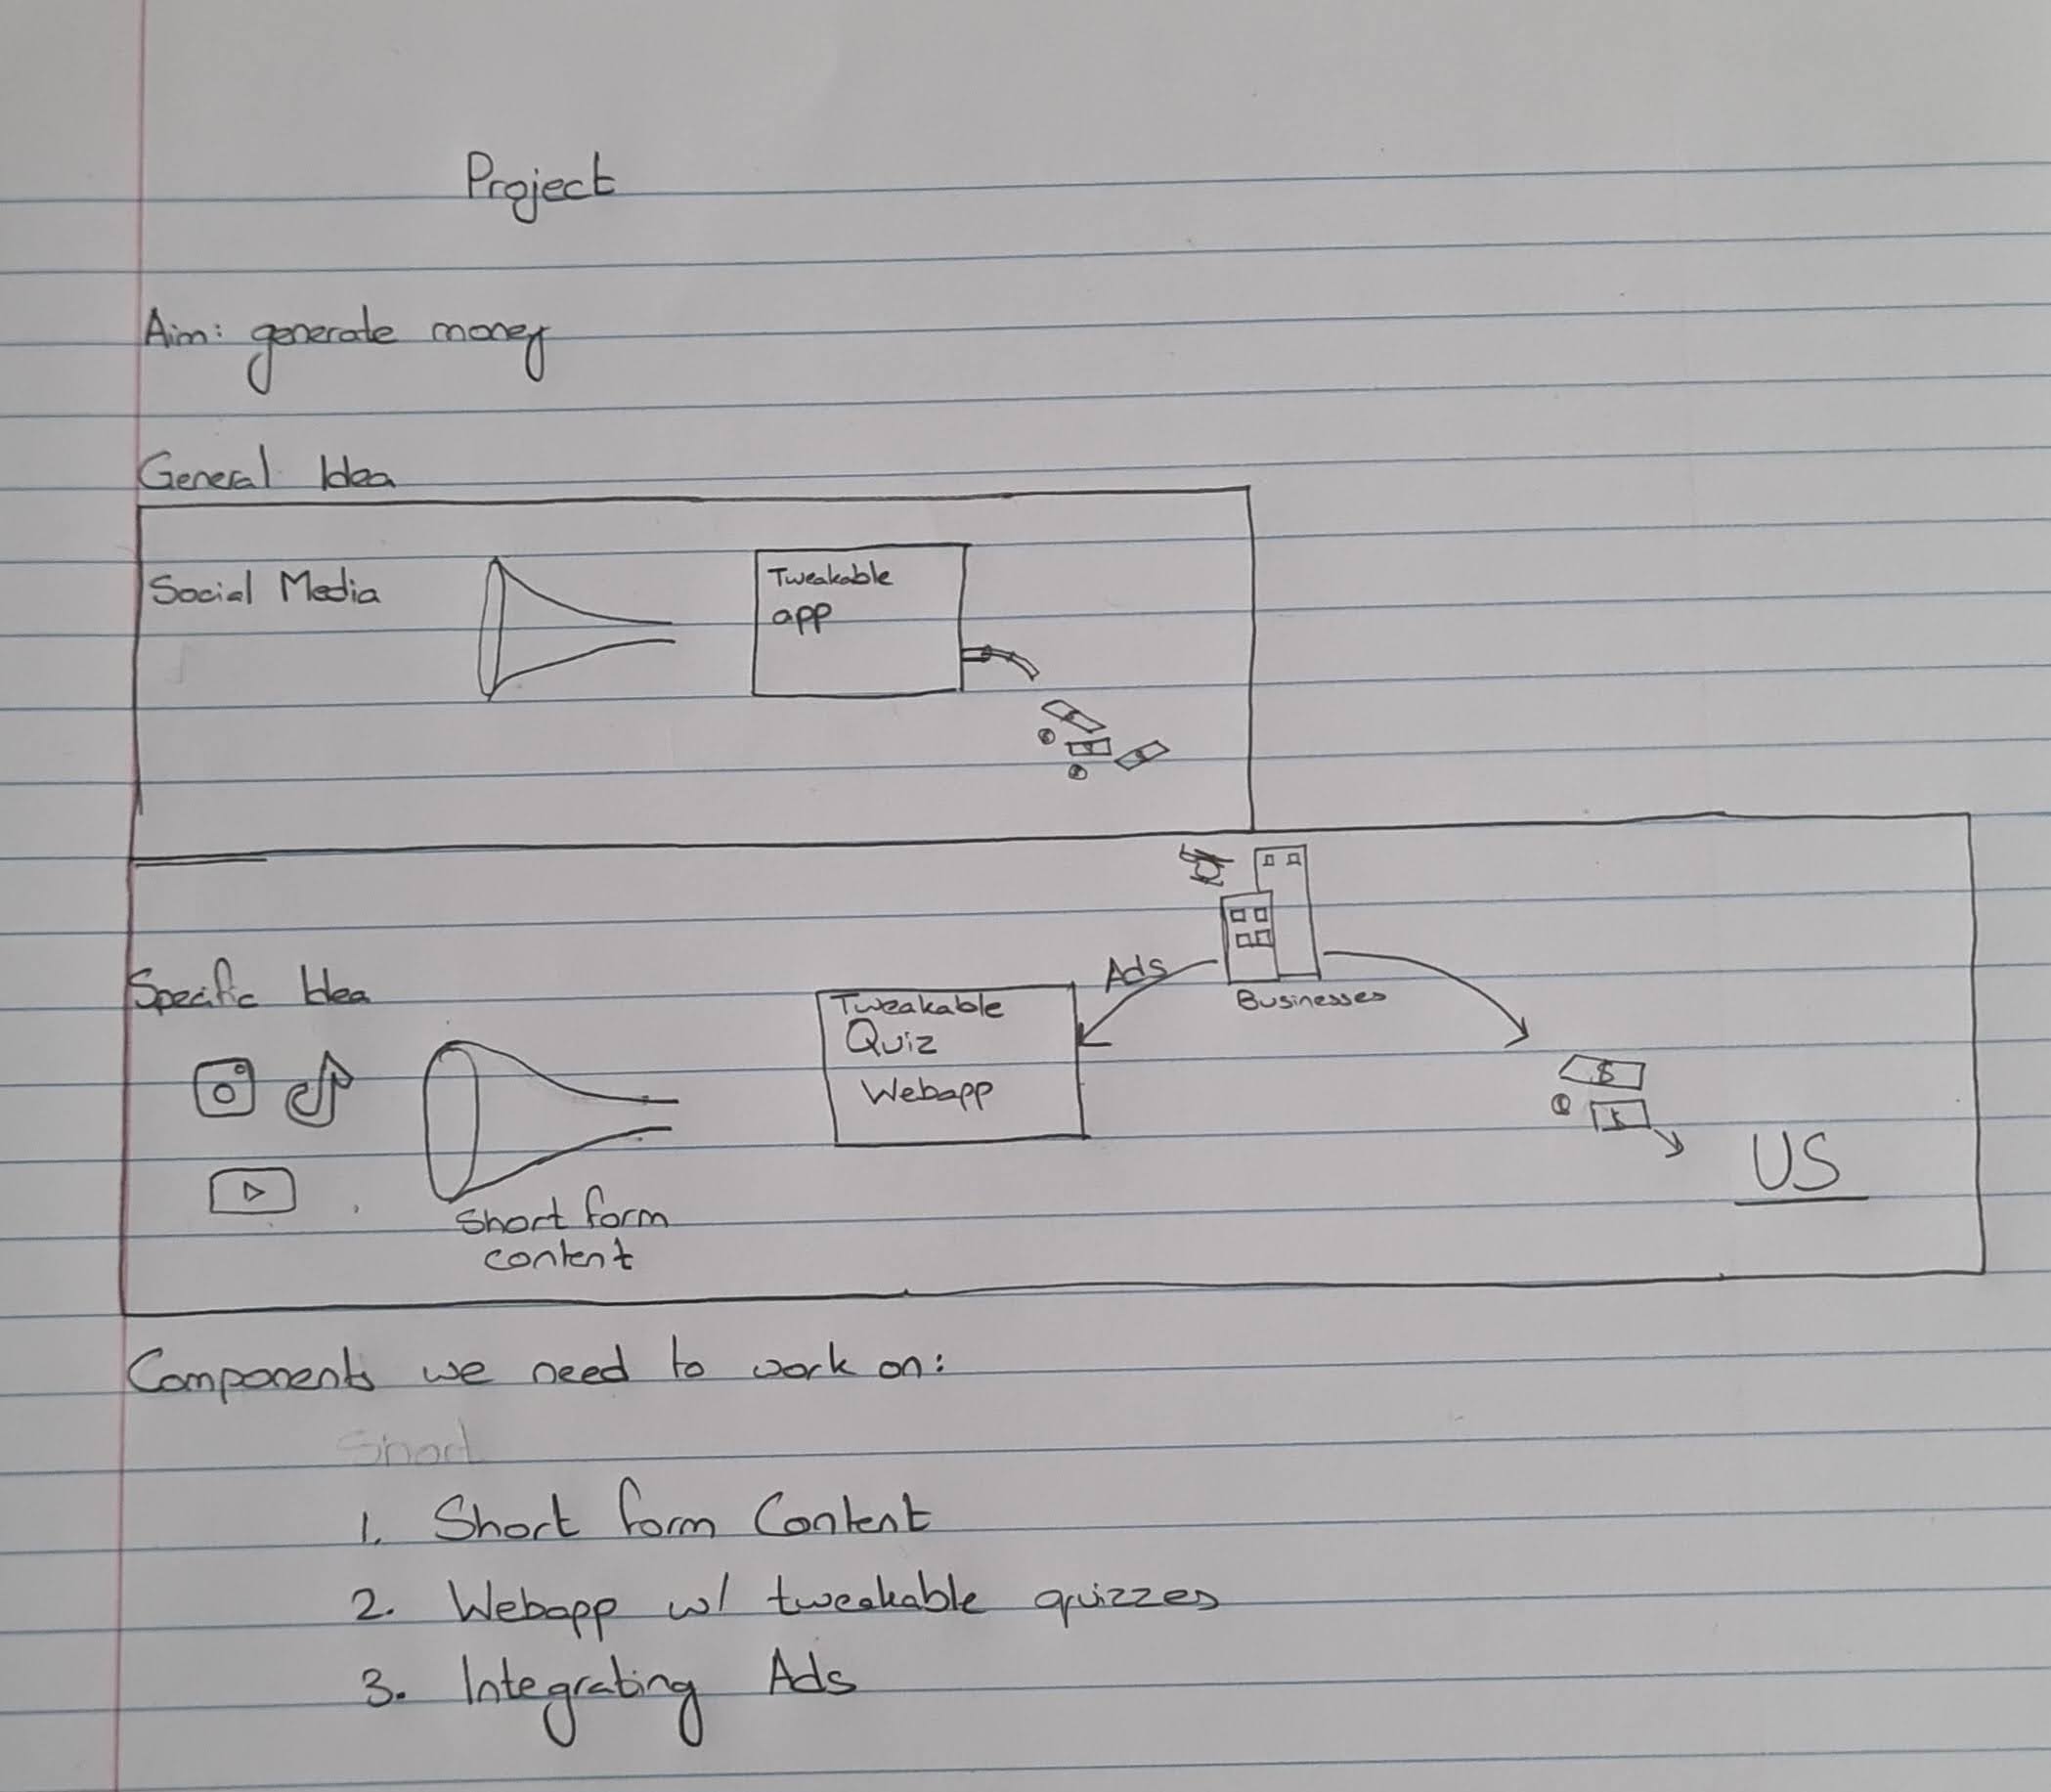 Project
Aim: generate money
General Idea
Social Media
Tweakable
app
Specific Idea
Ads
Businesses
Tweakable
Quiz
Webapp
$
$
US
Short form
content
Components we need to work on:
Short
1. Short form Content
2. Webapp w/ tweakable quizzes
3. Integrating Ads